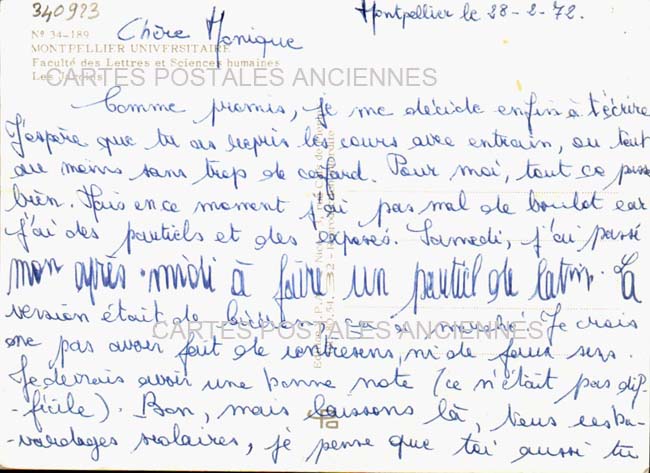 340923
Montpellier le 28-2-72.
Nº 34-189
Chère Monique
MONTPELLIER UNIVERSITAIRE
Faculté des Lettres et Sciences humaines
Les Jardins
CARTES POSTALES ANCIENNES
Comme promis, je me décide enfin à t'écrire
J'espère que tu as repris les cours avec entrain, ou tout
au moins sans trop de cafard. Pour moi, tout se passe
bien. Mais en ce moment j'ai pas mal de boulot car
j'ai des partiels et des exposés. Samedi, j'ai passé
mon après-midi à faire un partiel de latin. La
version était de ça a marché. Je crois
CARTES POSTALES ANCIENNES
ne pas avoir fait de contresens, ni de faux sens.
Je devrais avoir une bonne note (ce n'était pas dif-
-ficile). Bon, mais laissons là, tous ces ba-
-vardages scolaires, je pense que toi aussi tu